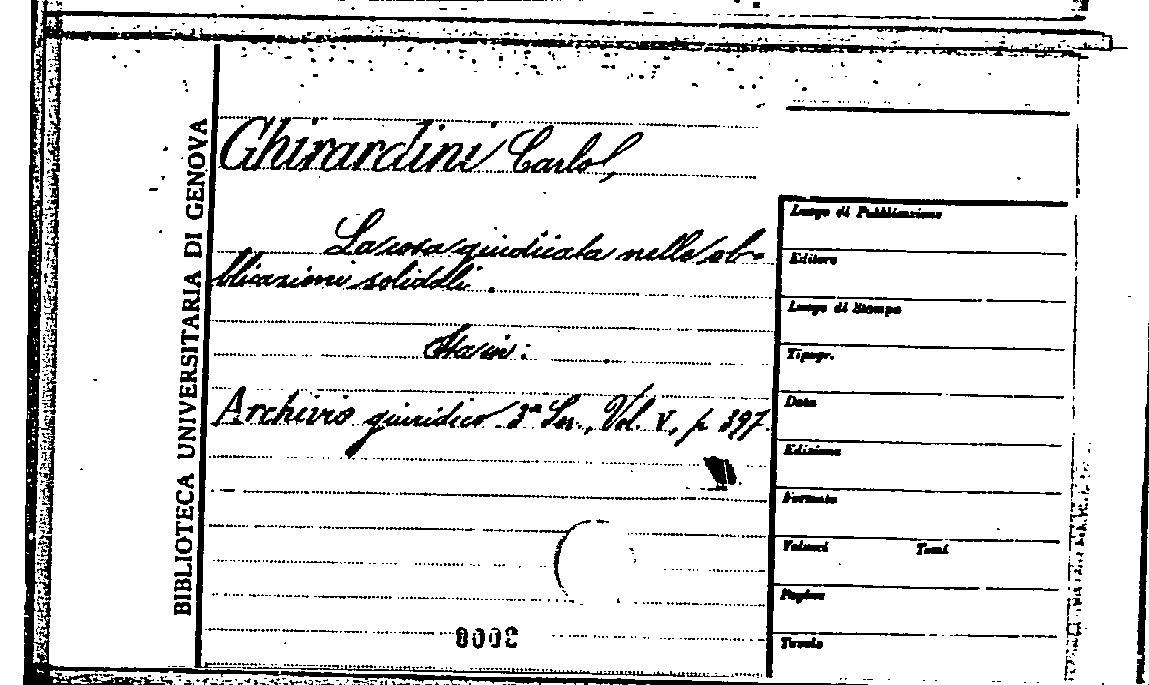 BIBLIOTECA UNIVERSITARIA DI GENOVA
Ghirardini Carlo,
La cosa giudicata nelle ob-
bligazioni solidali.
Archivio giuridico 3ª Ser., Vol. V, p 397.
Luogo di Pubblicazione
Editore
Luogo di Stampa
Tipogr.
Data
Edizione
Formato
Volumi Tomi
Pagine
Tavole